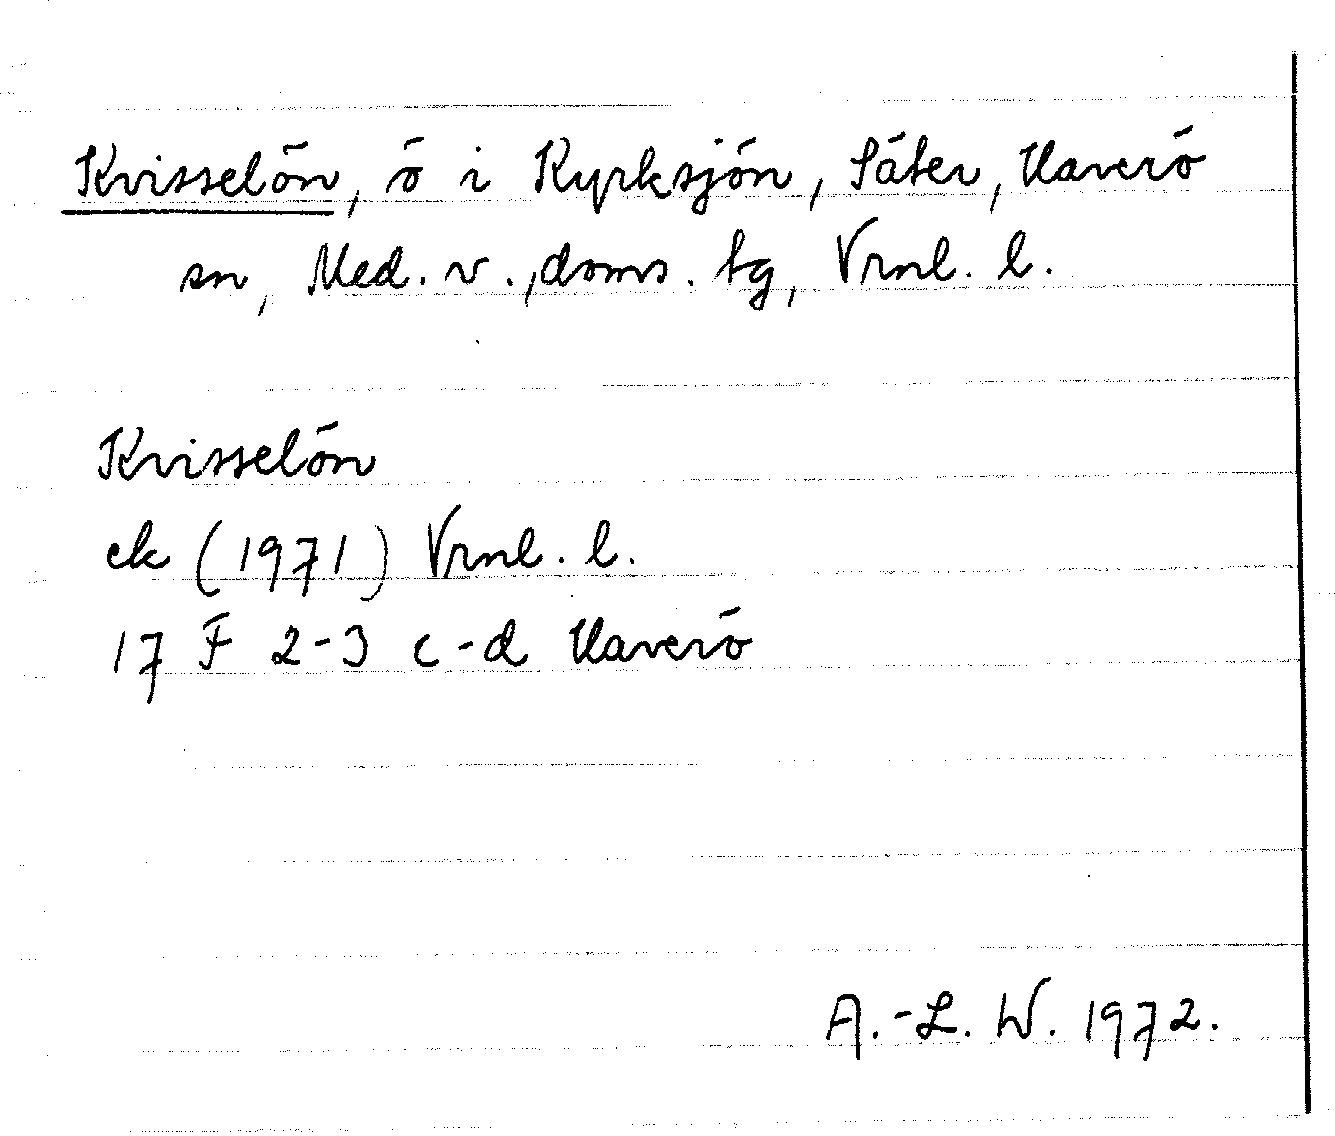 Kvisselön, ö i Kyrksjön, Säter, Haverö
sn, Med. v., doms. tg, Vrnl. l.
Kvisselön
ek (1971) Vrnl. l.
17 F 2-3 c-d Haverö
A.-L. W. 1972.